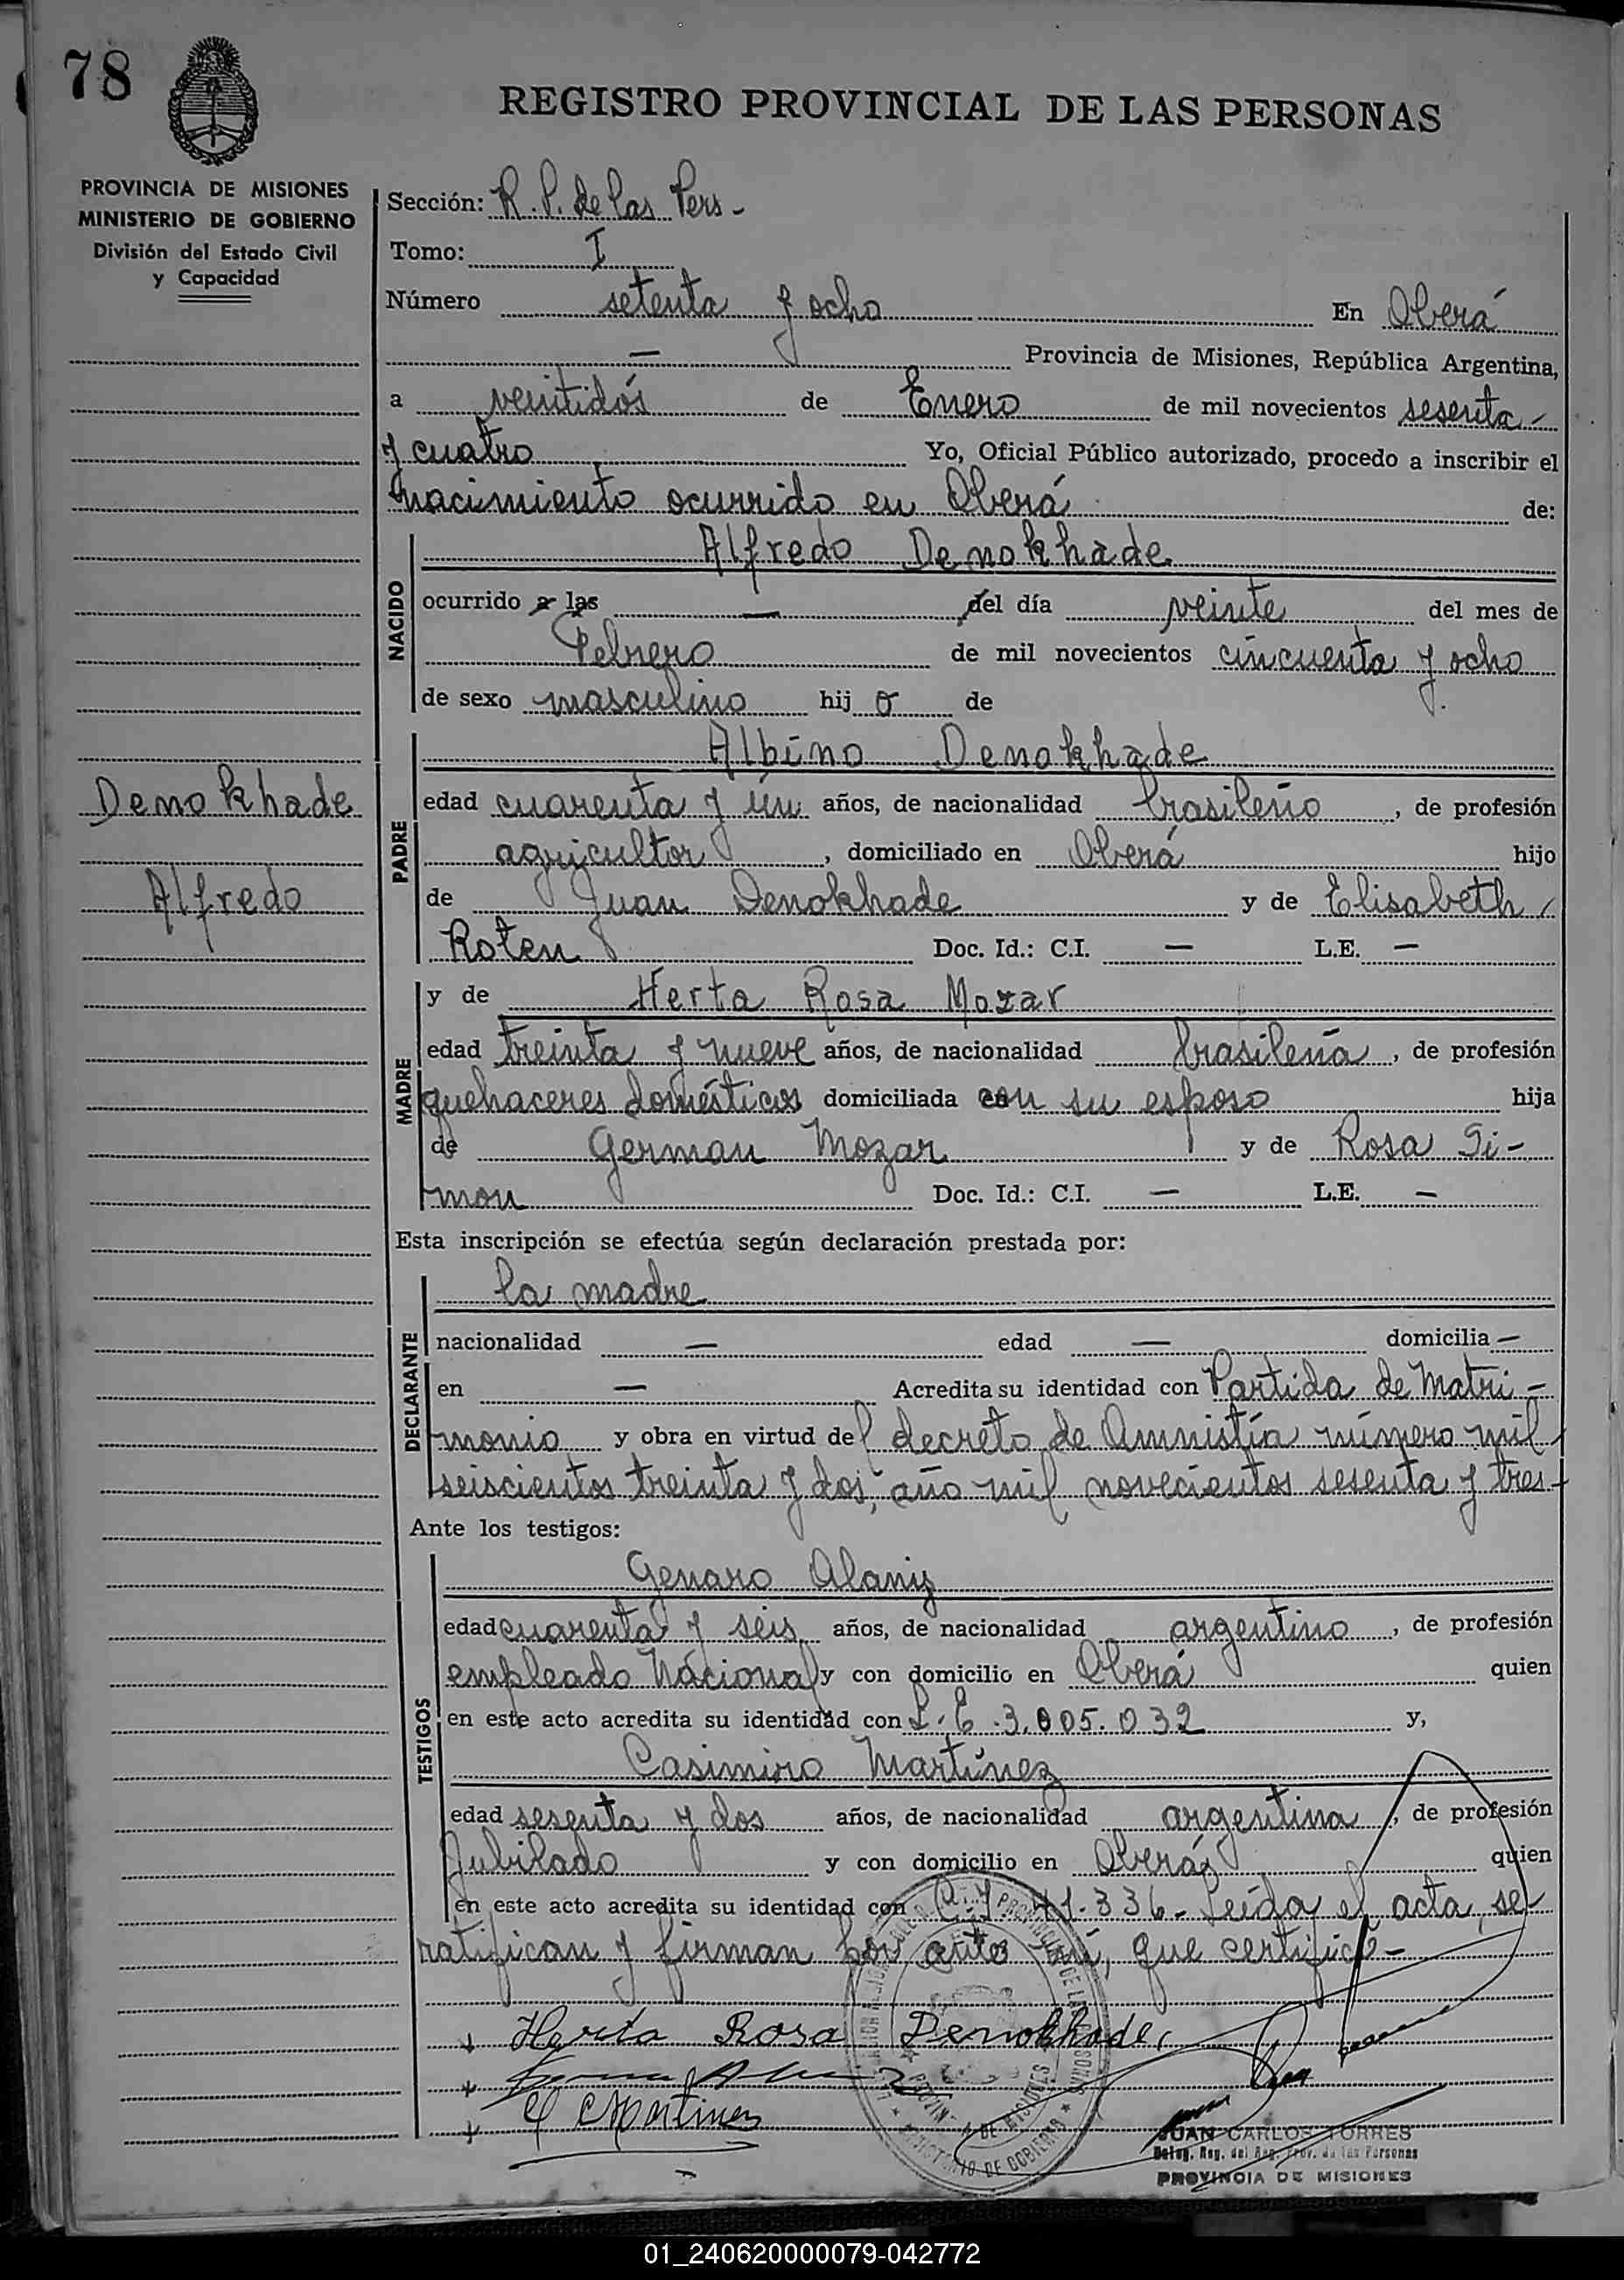 78
REGISTRO PROVINCIAL DE LAS PERSONAS
PROVINCIA DE MISIONES
MINISTERIO DE GOBIERNO
División del Estado Civil
y Capacidad
Sección: R. P. de las Pers -
Tomo: I
Número setenta y ocho En Oberá
— Provincia de Misiones, República Argentina,
a veintidós de Enero de mil novecientos sesenta -
y cuatro Yo, Oficial Público autorizado, procedo a inscribir el
nacimiento ocurrido en Oberá de:
NACIDO
Alfredo Denokhade
ocurrido a las — del día veinte del mes de
Febrero de mil novecientos cincuenta y ocho
de sexo masculino hij o de
PADRE
Albino Denokhade
Denokhade
Alfredo
edad cuarenta y un años, de nacionalidad brasileño, de profesión
agricultor, domiciliado en Oberá hijo
de Juan Denokhade y de Elisabeth
Roten Doc. Id.: C.I. — L.E. —
MADRE
y de Herta Rosa Mozar
edad treinta y nueve años, de nacionalidad brasileña, de profesión
quehaceres domésticos domiciliada con su esposo hija
de German Mozar y de Rosa Si-
mon Doc. Id.: C.I. — L.E. —
Esta inscripción se efectúa según declaración prestada por:
DECLARANTE
la madre
nacionalidad — edad — domicilia —
en — Acredita su identidad con Partida de Matri-
monio y obra en virtud del decreto de Amnistía número mil
seiscientos treinta y dos, año mil novecientos sesenta y tres-
Ante los testigos:
TESTIGOS
Genaro Alaniz
edad cuarenta y seis años, de nacionalidad argentino, de profesión
empleado Nacional y con domicilio en Oberá quien
en este acto acredita su identidad con L. E. 3.005.032 y,
Casimiro Martínez
edad sesenta y dos años, de nacionalidad argentina, de profesión
Jubilado y con domicilio en Oberá quien
en este acto acredita su identidad con 41.336 - Leída el acta, se
ratifican y firman por ante mí, que certifico -
Herta Rosa Denokhade
C Martinez
JUAN CARLOS TORRES
Deleg. Reg. del Reg. Prov. de las Personas
PROVINCIA DE MISIONES
01_240620000079-042772